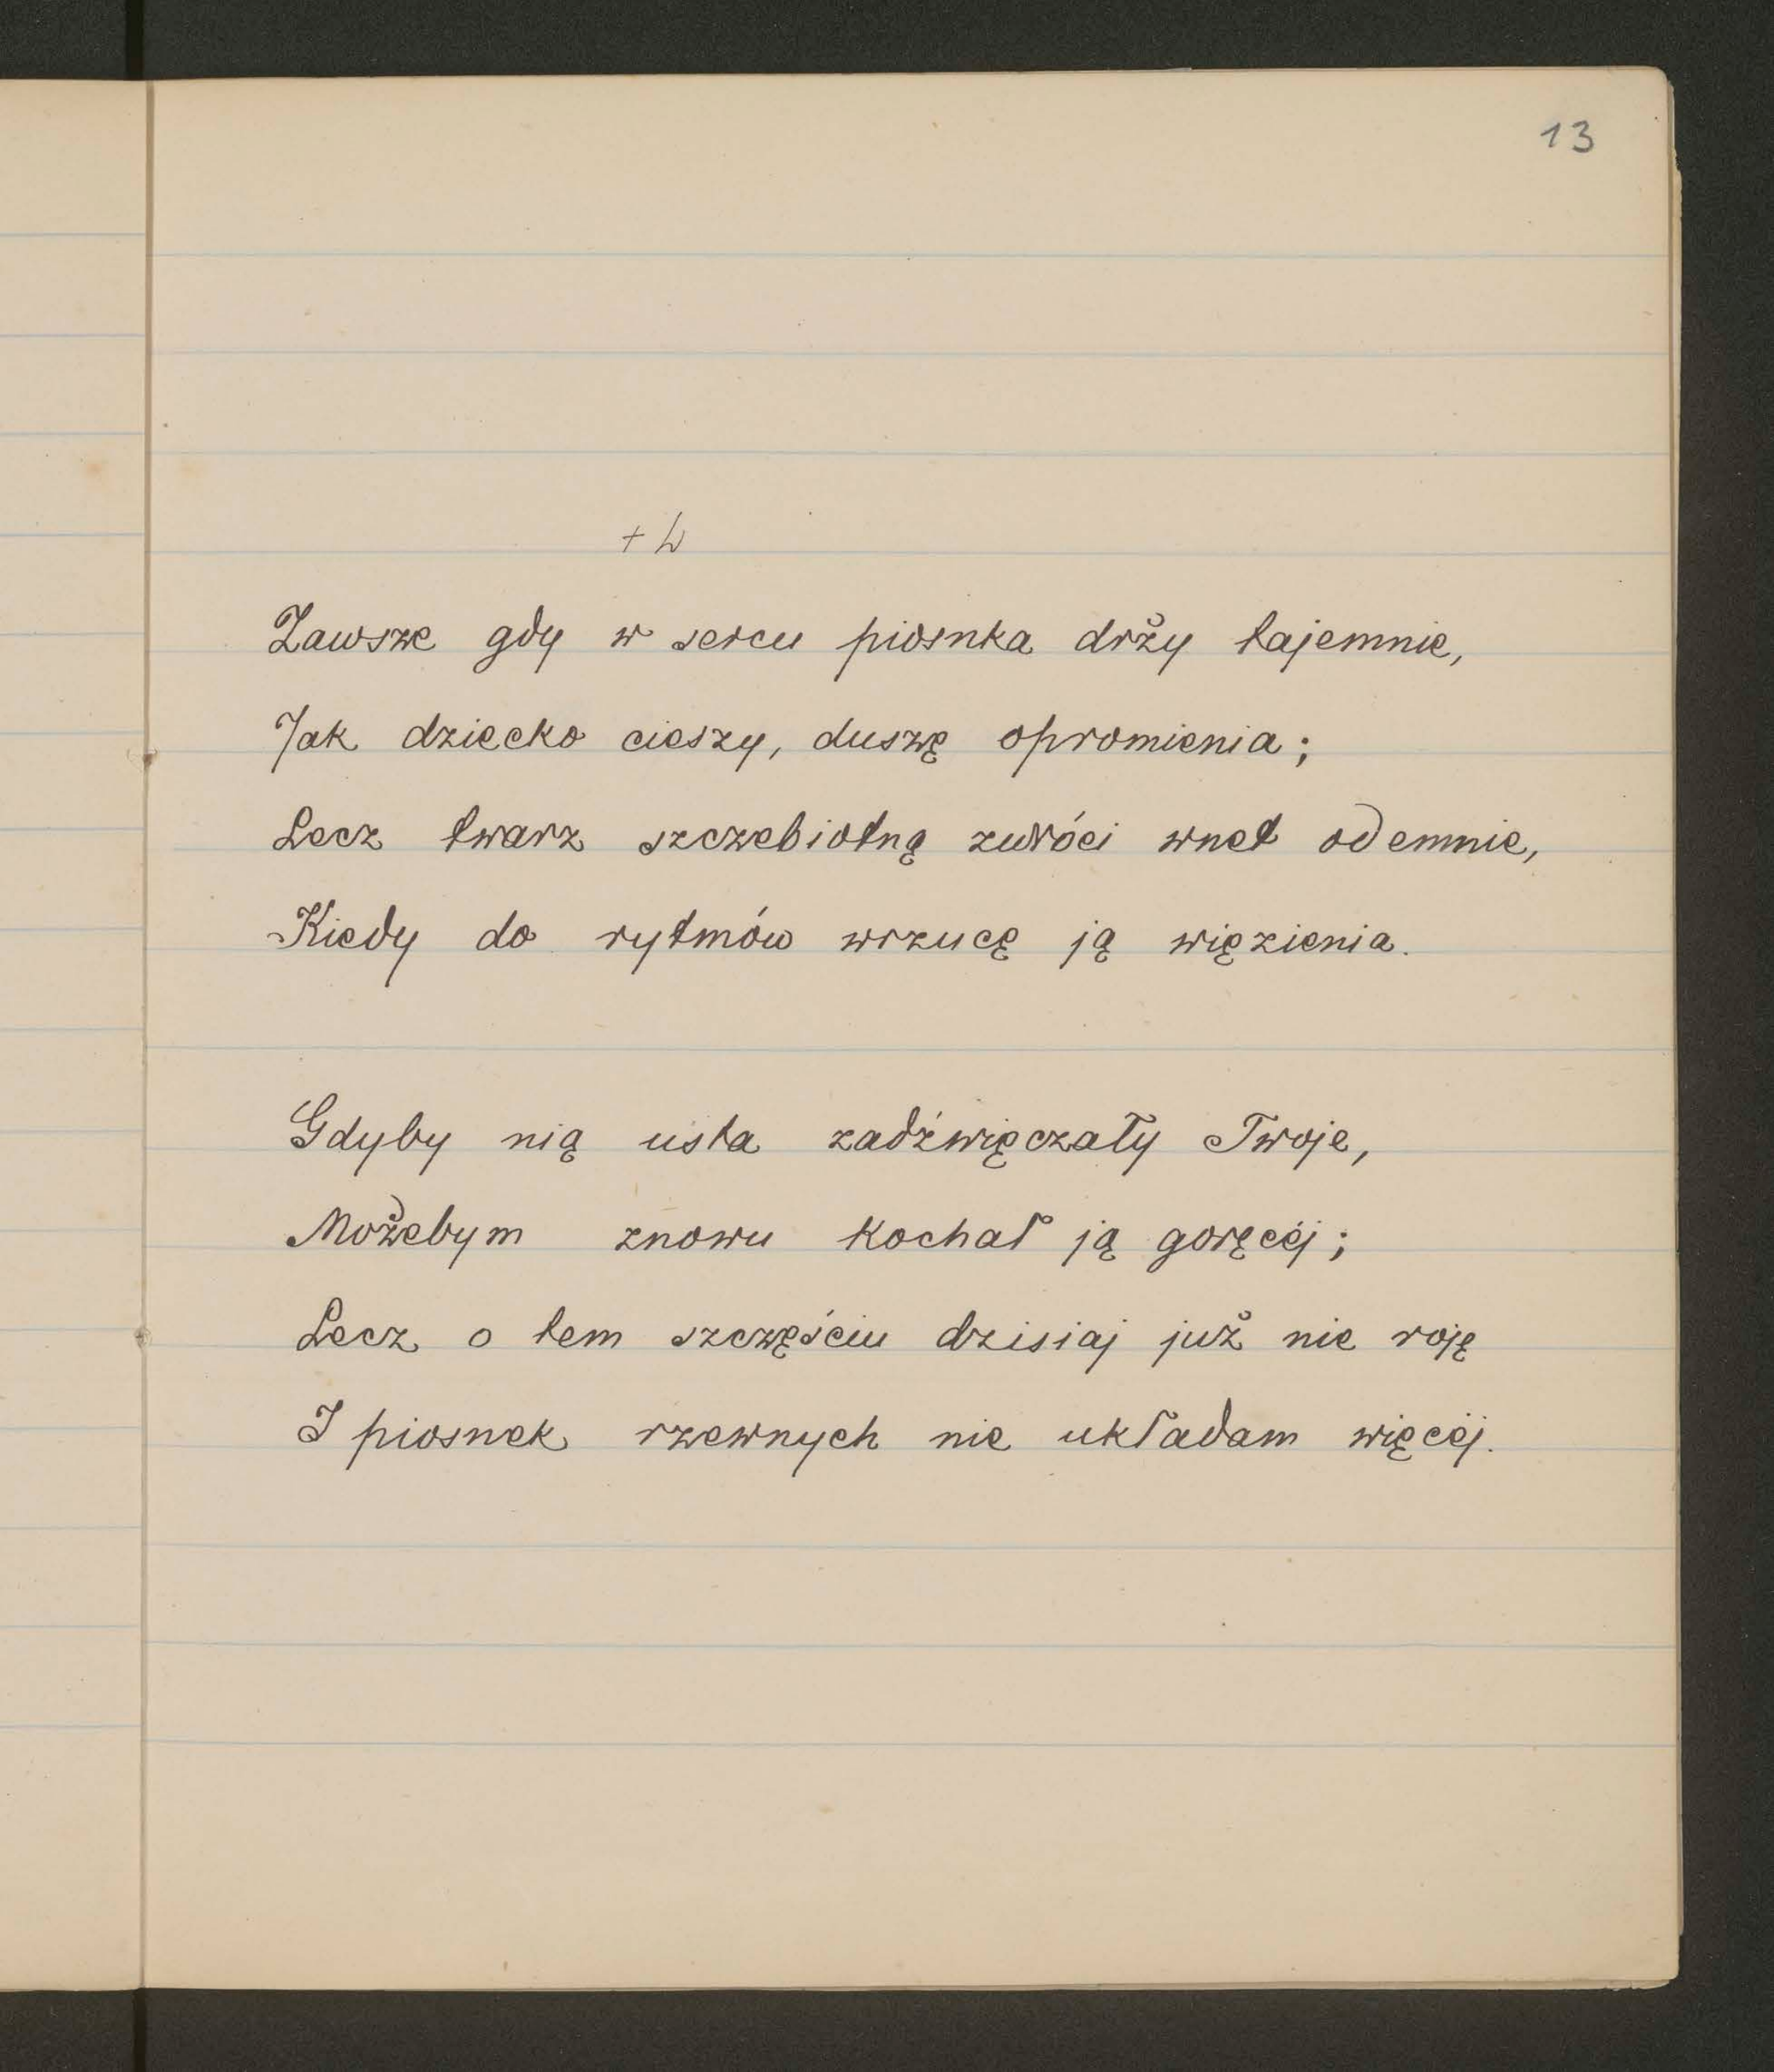 13
Zawsze gdy w sercu piosnka drży tajemnie,
Jak dziecko cieszy, duszę opromienia;
Lecz twarz szczebiotną zwróci wnet odemnie,
Kiedy do rytmów wrzucę ją więzienia.
Gdyby nią usta zadźwięczały Twoje,
Możebym znowu kochał ją goręcéj;
Lecz o tem szczęściu dzisiaj już nie roję
I piosnek rzewnych nie układam więcéj.